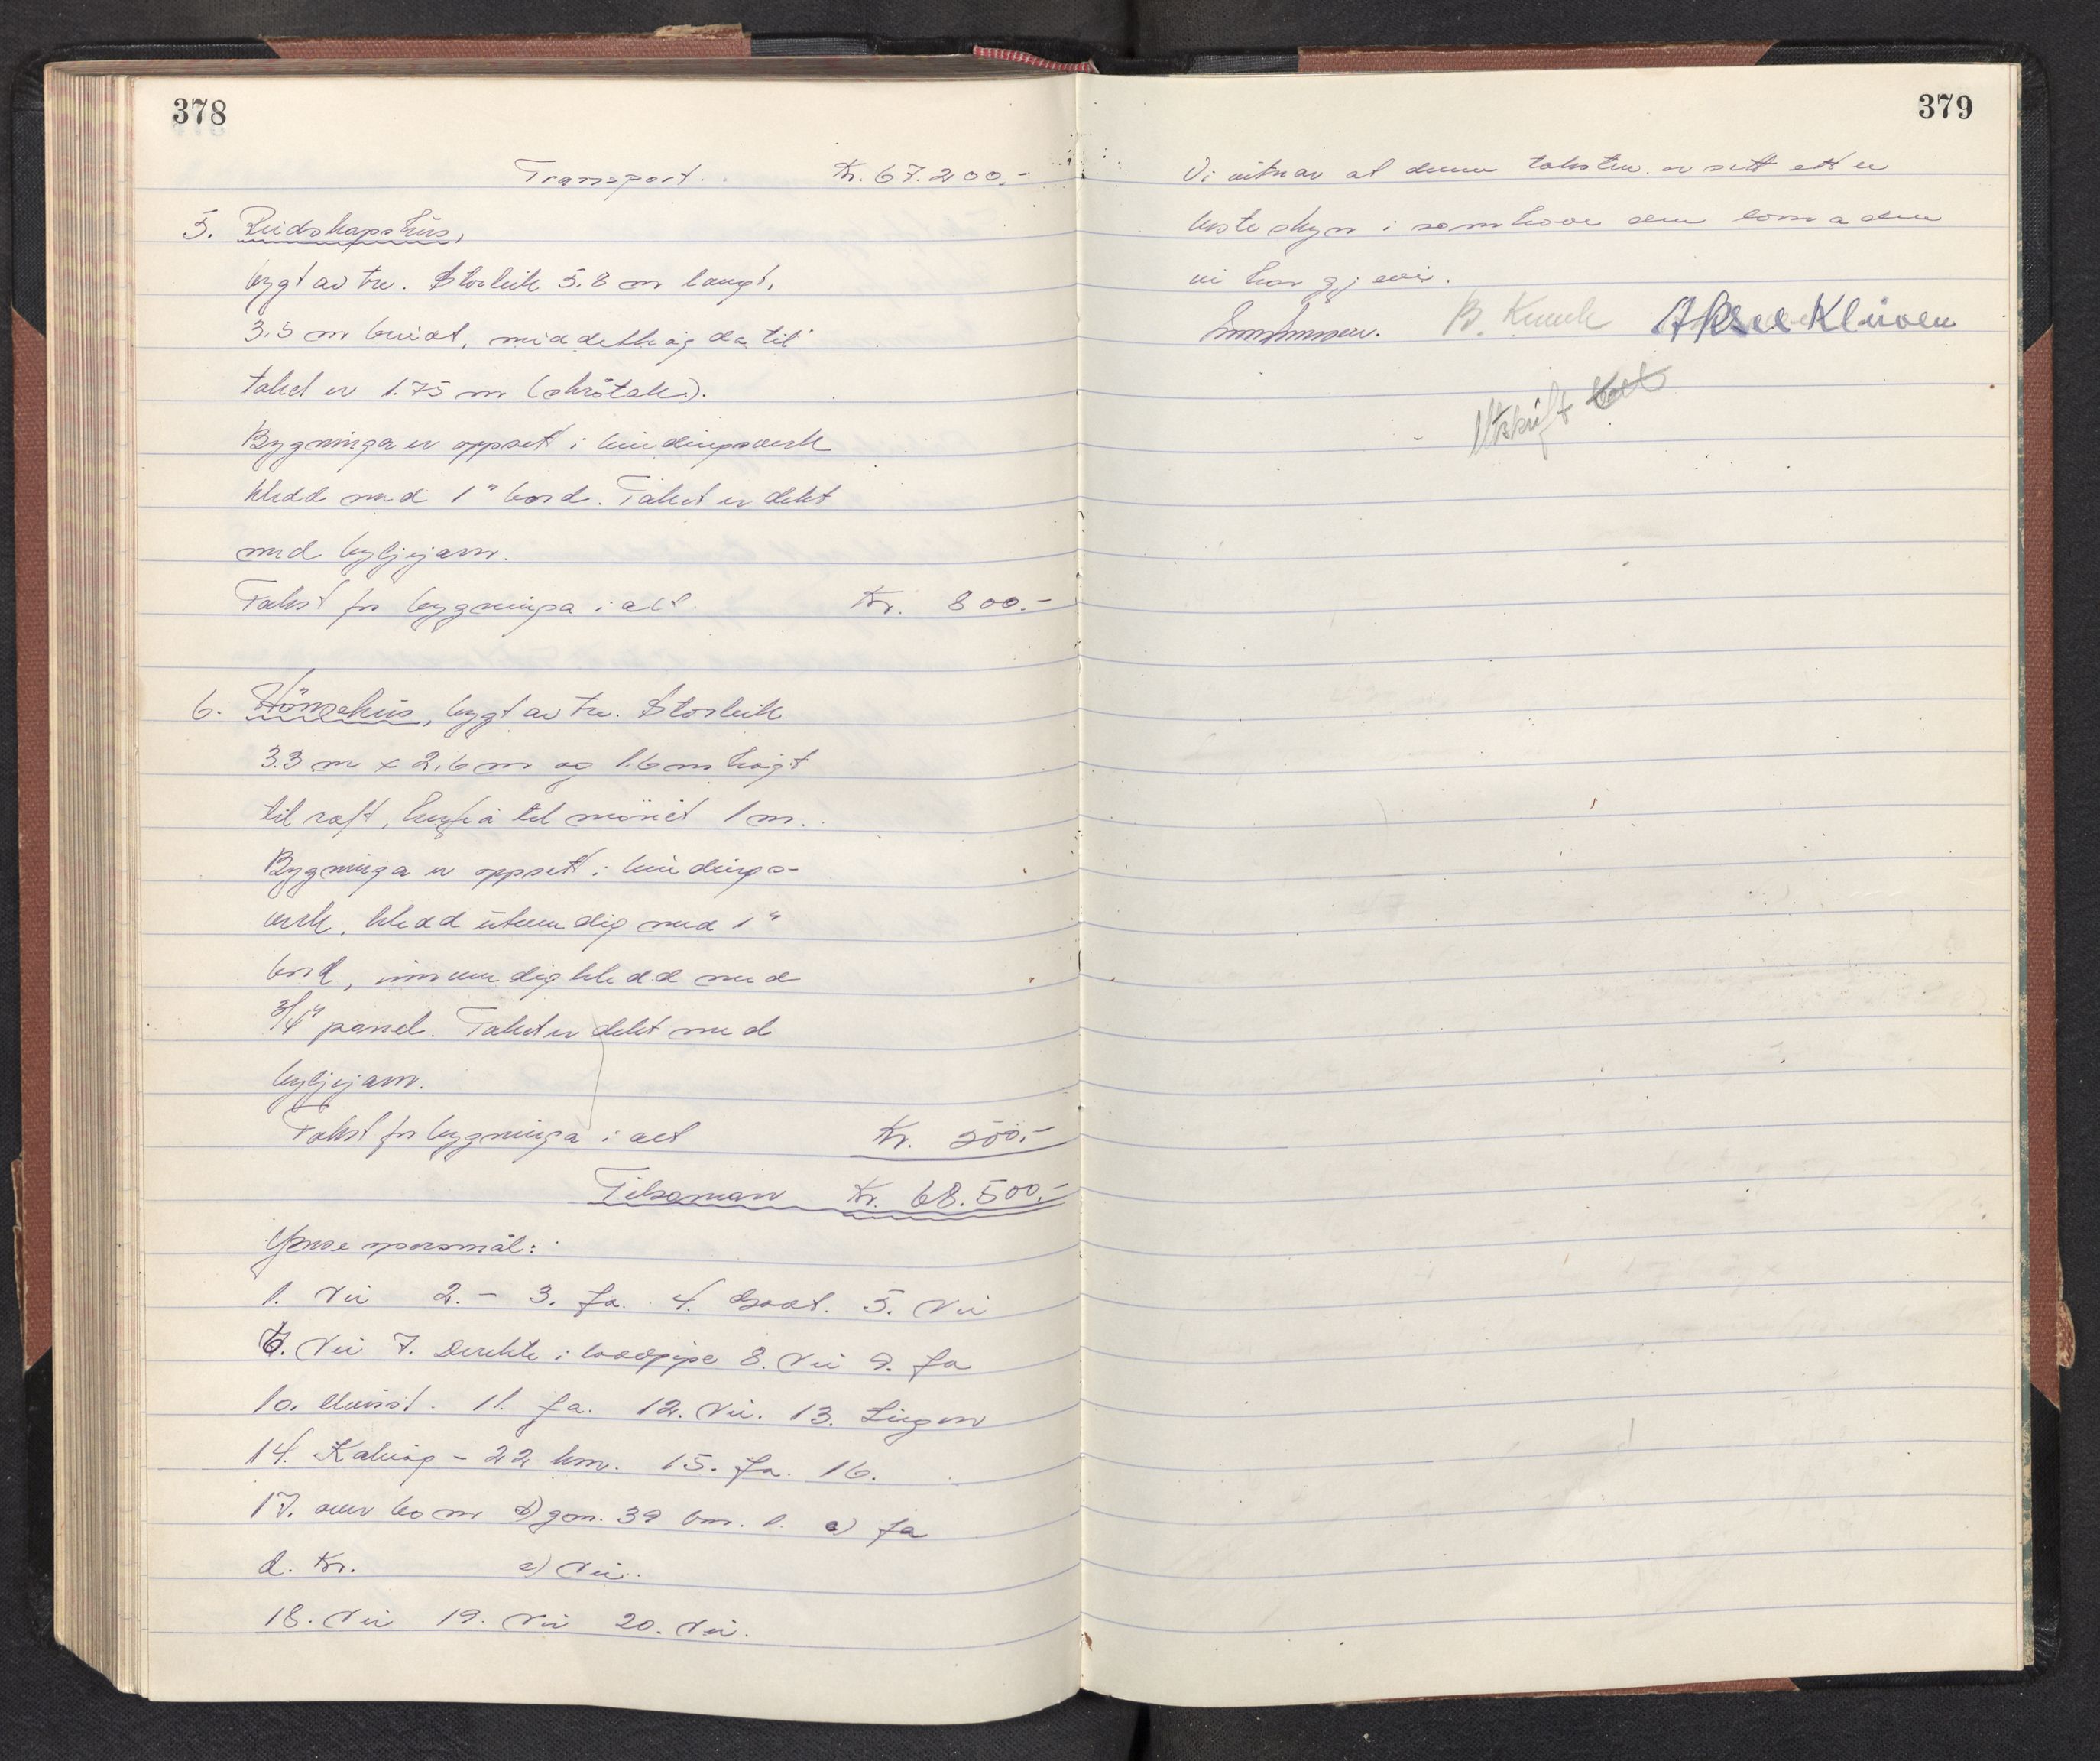 378
Transport. . Kr. 67.200.-
5. Reidskapshus,
bygt av tre. Storleik 5.8 m langt,
3.5 m breidt, middelhögda til
taket er 1.75 m (skråtak).
Bygninga er oppsett i bindingsverk
kledd med 1" bord. Taket er dekt
med bylgjejarn.
Takst for bygninga i alt. Kr. 800.-
6. Hönsehus, bygt av tre. Storleik
3.3 m x 2.6 m og 1.6 m högt
til raft, herfrå til mönet 1 m.
Bygninga er oppsett i bindings-
verk, kledd utvendig med 1"
bord, innvendig kledd med
3/4" panel. Taket er dekt med
bylgjejarn.
Takst for bygninga i alt Kr. 500.-
Tilsaman Kr. 68.500.-
Ymse spørsmål:
1. Nei 2. - 3. Ja. 4. Godt. 5. Nei
6. Nei 7. Direkte i hovedpipe 8. Nei 9. Ja
10. Minst. 11. Ja. 12. Nei. 13. Ingen
14. Kalvåg - 22 km. 15. Ja. 16.
17. over 60 m b) gm. 39 c) Ja
d. Kr. e) Nei.
18. Nei 19. Nei 20. Nei.
379
Vi vitnar at denne taksten er sett etter
beste skyn i samhøve den lovnaden
vi har gjeve.
B. Kumle Aksel Kleiven
Utskrift